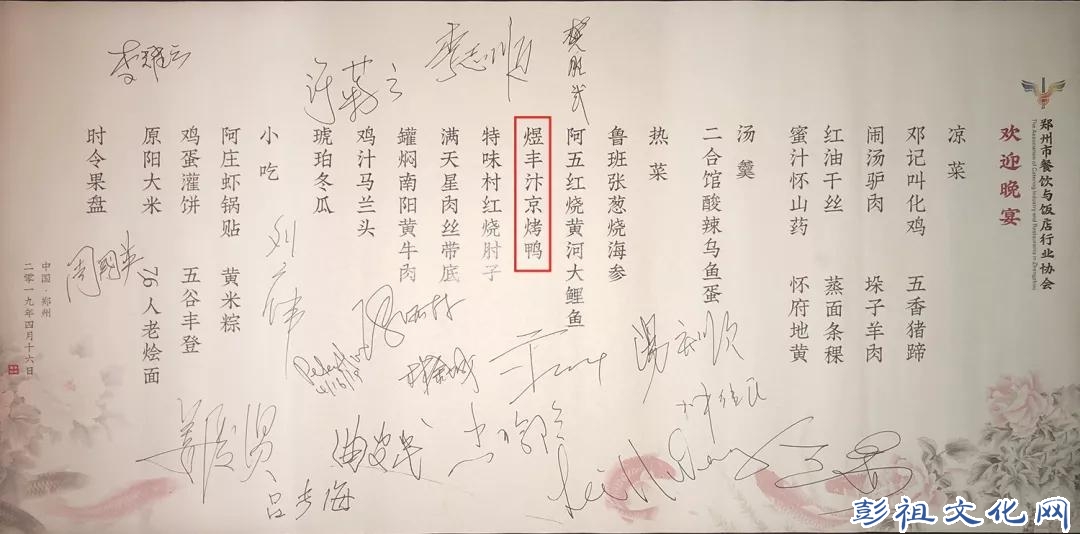 郑州市餐饮与饭店行业协会
The Association of Catering Industry and Restaurants in Zhengzhou
欢迎晚宴
凉菜
邓记叫化鸡 五香猪蹄
闹汤驴肉 垛子羊肉
红油干丝 蒸面条稞
蜜汁怀山药 怀府地黄
汤羹
二合馆酸辣乌鱼蛋
热菜
鲁班张葱烧海参
阿五红烧黄河大鲤鱼
煜丰汴京烤鸭
特味村红烧肘子
满天星肉丝带底
罐焖南阳黄牛肉
鸡汁马兰头
琥珀冬瓜
小吃
阿庄虾锅贴 黄米粽
鸡蛋灌饼 五谷丰登
原阳大米 76人老烩面
时令果盘
中国·郑州
二零一九年四月十六日
李耀云
李志顺
樊胜武
吕长海
彭祖文化网